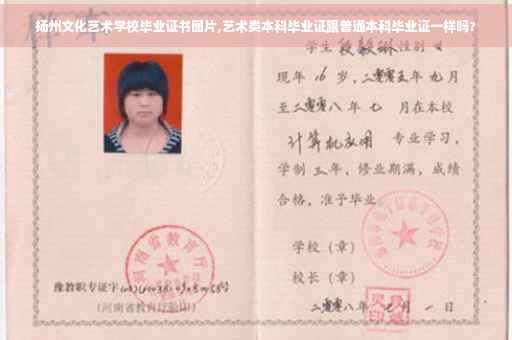 扬州文化艺术学校毕业证书图片,艺术类本科毕业证跟普通本科毕业证一样吗?
学生 段毅琳 性别 女
现年 16 岁,二零零五年 九月
至二零零八年 七 月在本校
计算机应用 专业学习,
学制 三年,修业期满,成绩
合格,准予毕业
学校(章)
校长(章)
二零零八年 月 一 日
河南省教育厅
豫教职专证字
(河南省教育厅验印)